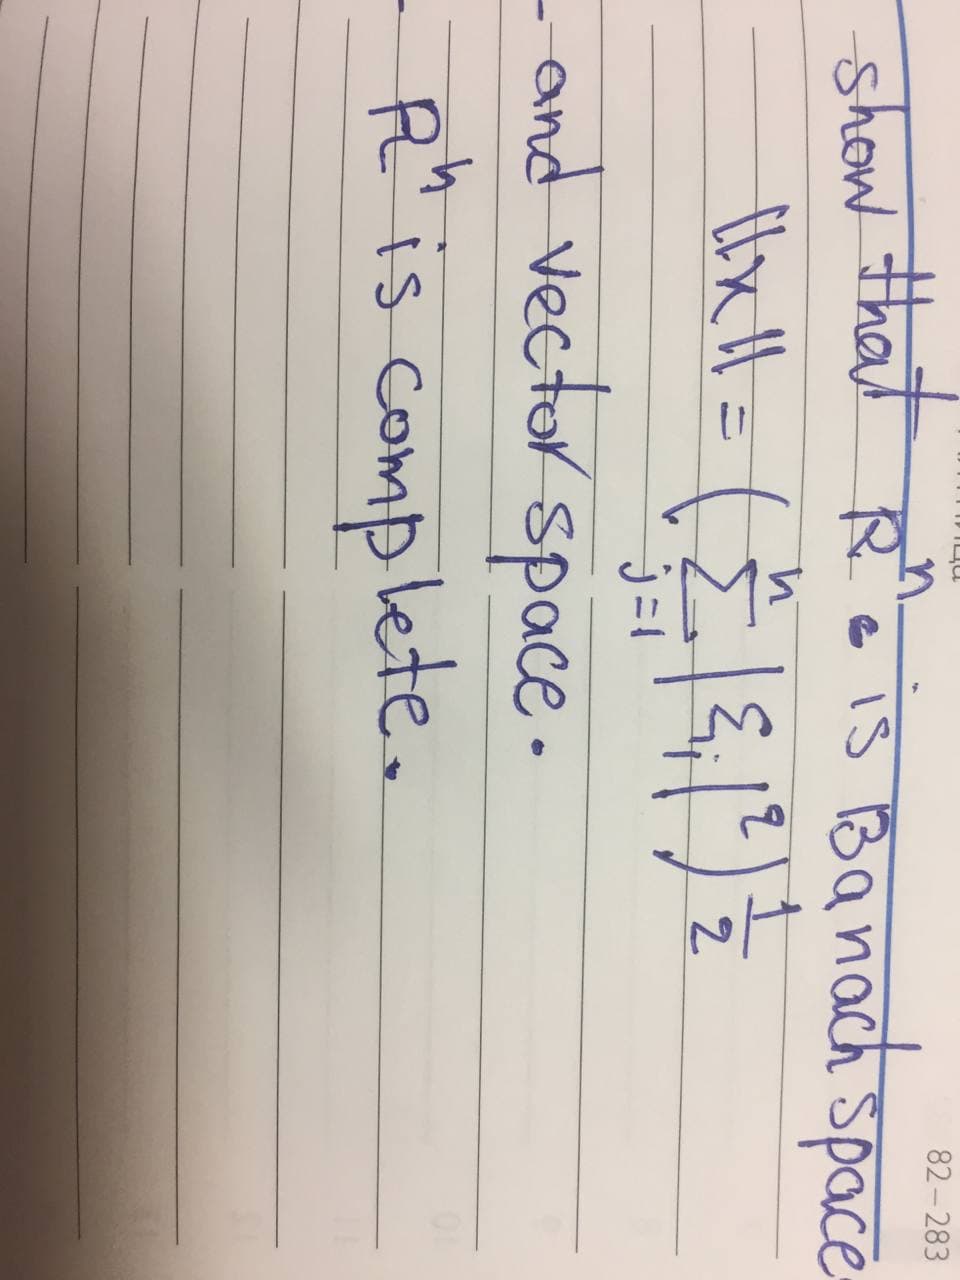 show that Rⁿ is Banach space
||x|| = (∑ⁿⱼ₌₁ |ξⱼ|²)^½
- and vector space.
- Rⁿ is complete.
82-283